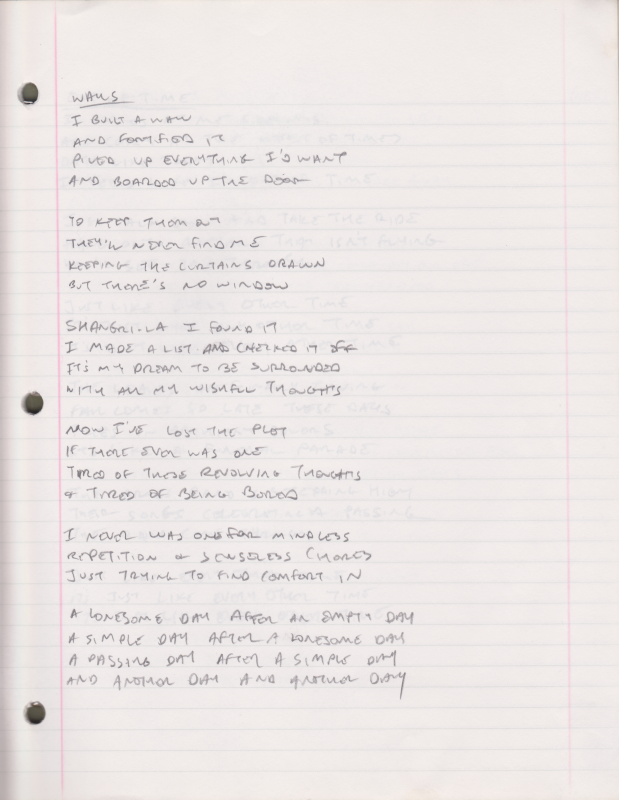 WALLS
I BUILT A WALL
AND FORTIFIED IT
PILED UP EVERYTHING I'D WANT
AND BOARDED UP THE DOOR
TO KEEP THEM OUT
THEY'LL NEVER FIND ME
KEEPING THE CURTAINS DRAWN
BUT THERE'S NO WINDOW
SHANGRI-LA I FOUND IT
I MADE A LIST AND CHECKED IT OFF
IT'S MY DREAM TO BE SURROUNDED
WITH ALL MY WISHFULL THOUGHTS
NOW I'VE LOST THE PLOT
IF THERE EVER WAS ONE
TIRED OF THESE REVOLVING THOUGHTS
& TIRED OF BEING BORED
I NEVER WAS ONE FOR MINDLESS
REPETITION & SENSELESS CHORES
JUST TRYING TO FIND COMFORT IN
A LONESOME DAY AFTER AN EMPTY DAY
A SIMPLE DAY AFTER A LONESOME DAY
A PASSING DAY AFTER A SIMPLE DAY
AND ANOTHER DAY AND ANOTHER DAY